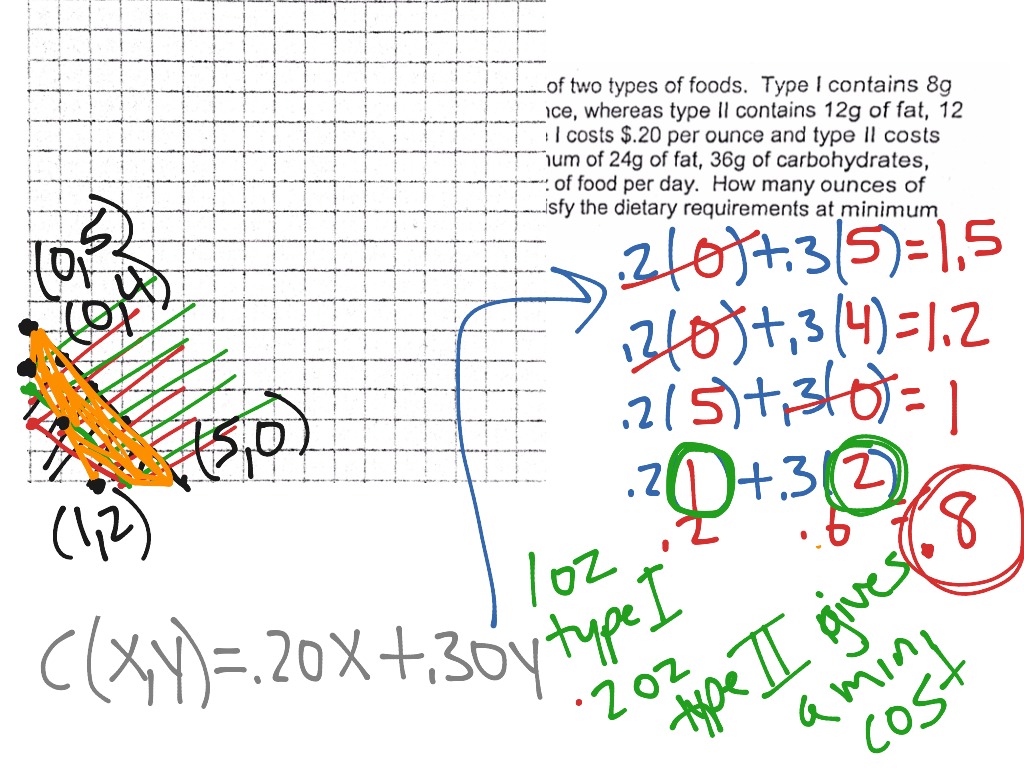 of two types of foods. Type I contains 8g
nce, whereas type II contains 12g of fat, 12
I costs $.20 per ounce and type II costs
num of 24g of fat, 36g of carbohydrates,
of food per day. How many ounces of
isfy the dietary requirements at minimum
(0,5)
(0,4)
(5,0)
(1,2)
.2(0)+.3(5)=1.5
.2(0)+.3(4)=1.2
.2(5)+.3(0)=1
.2(1)+.3(2)
.2 .6 = .8
C(x,y)=.20x+.30y
1oz
type I
.2oz
type II gives
a min
cost